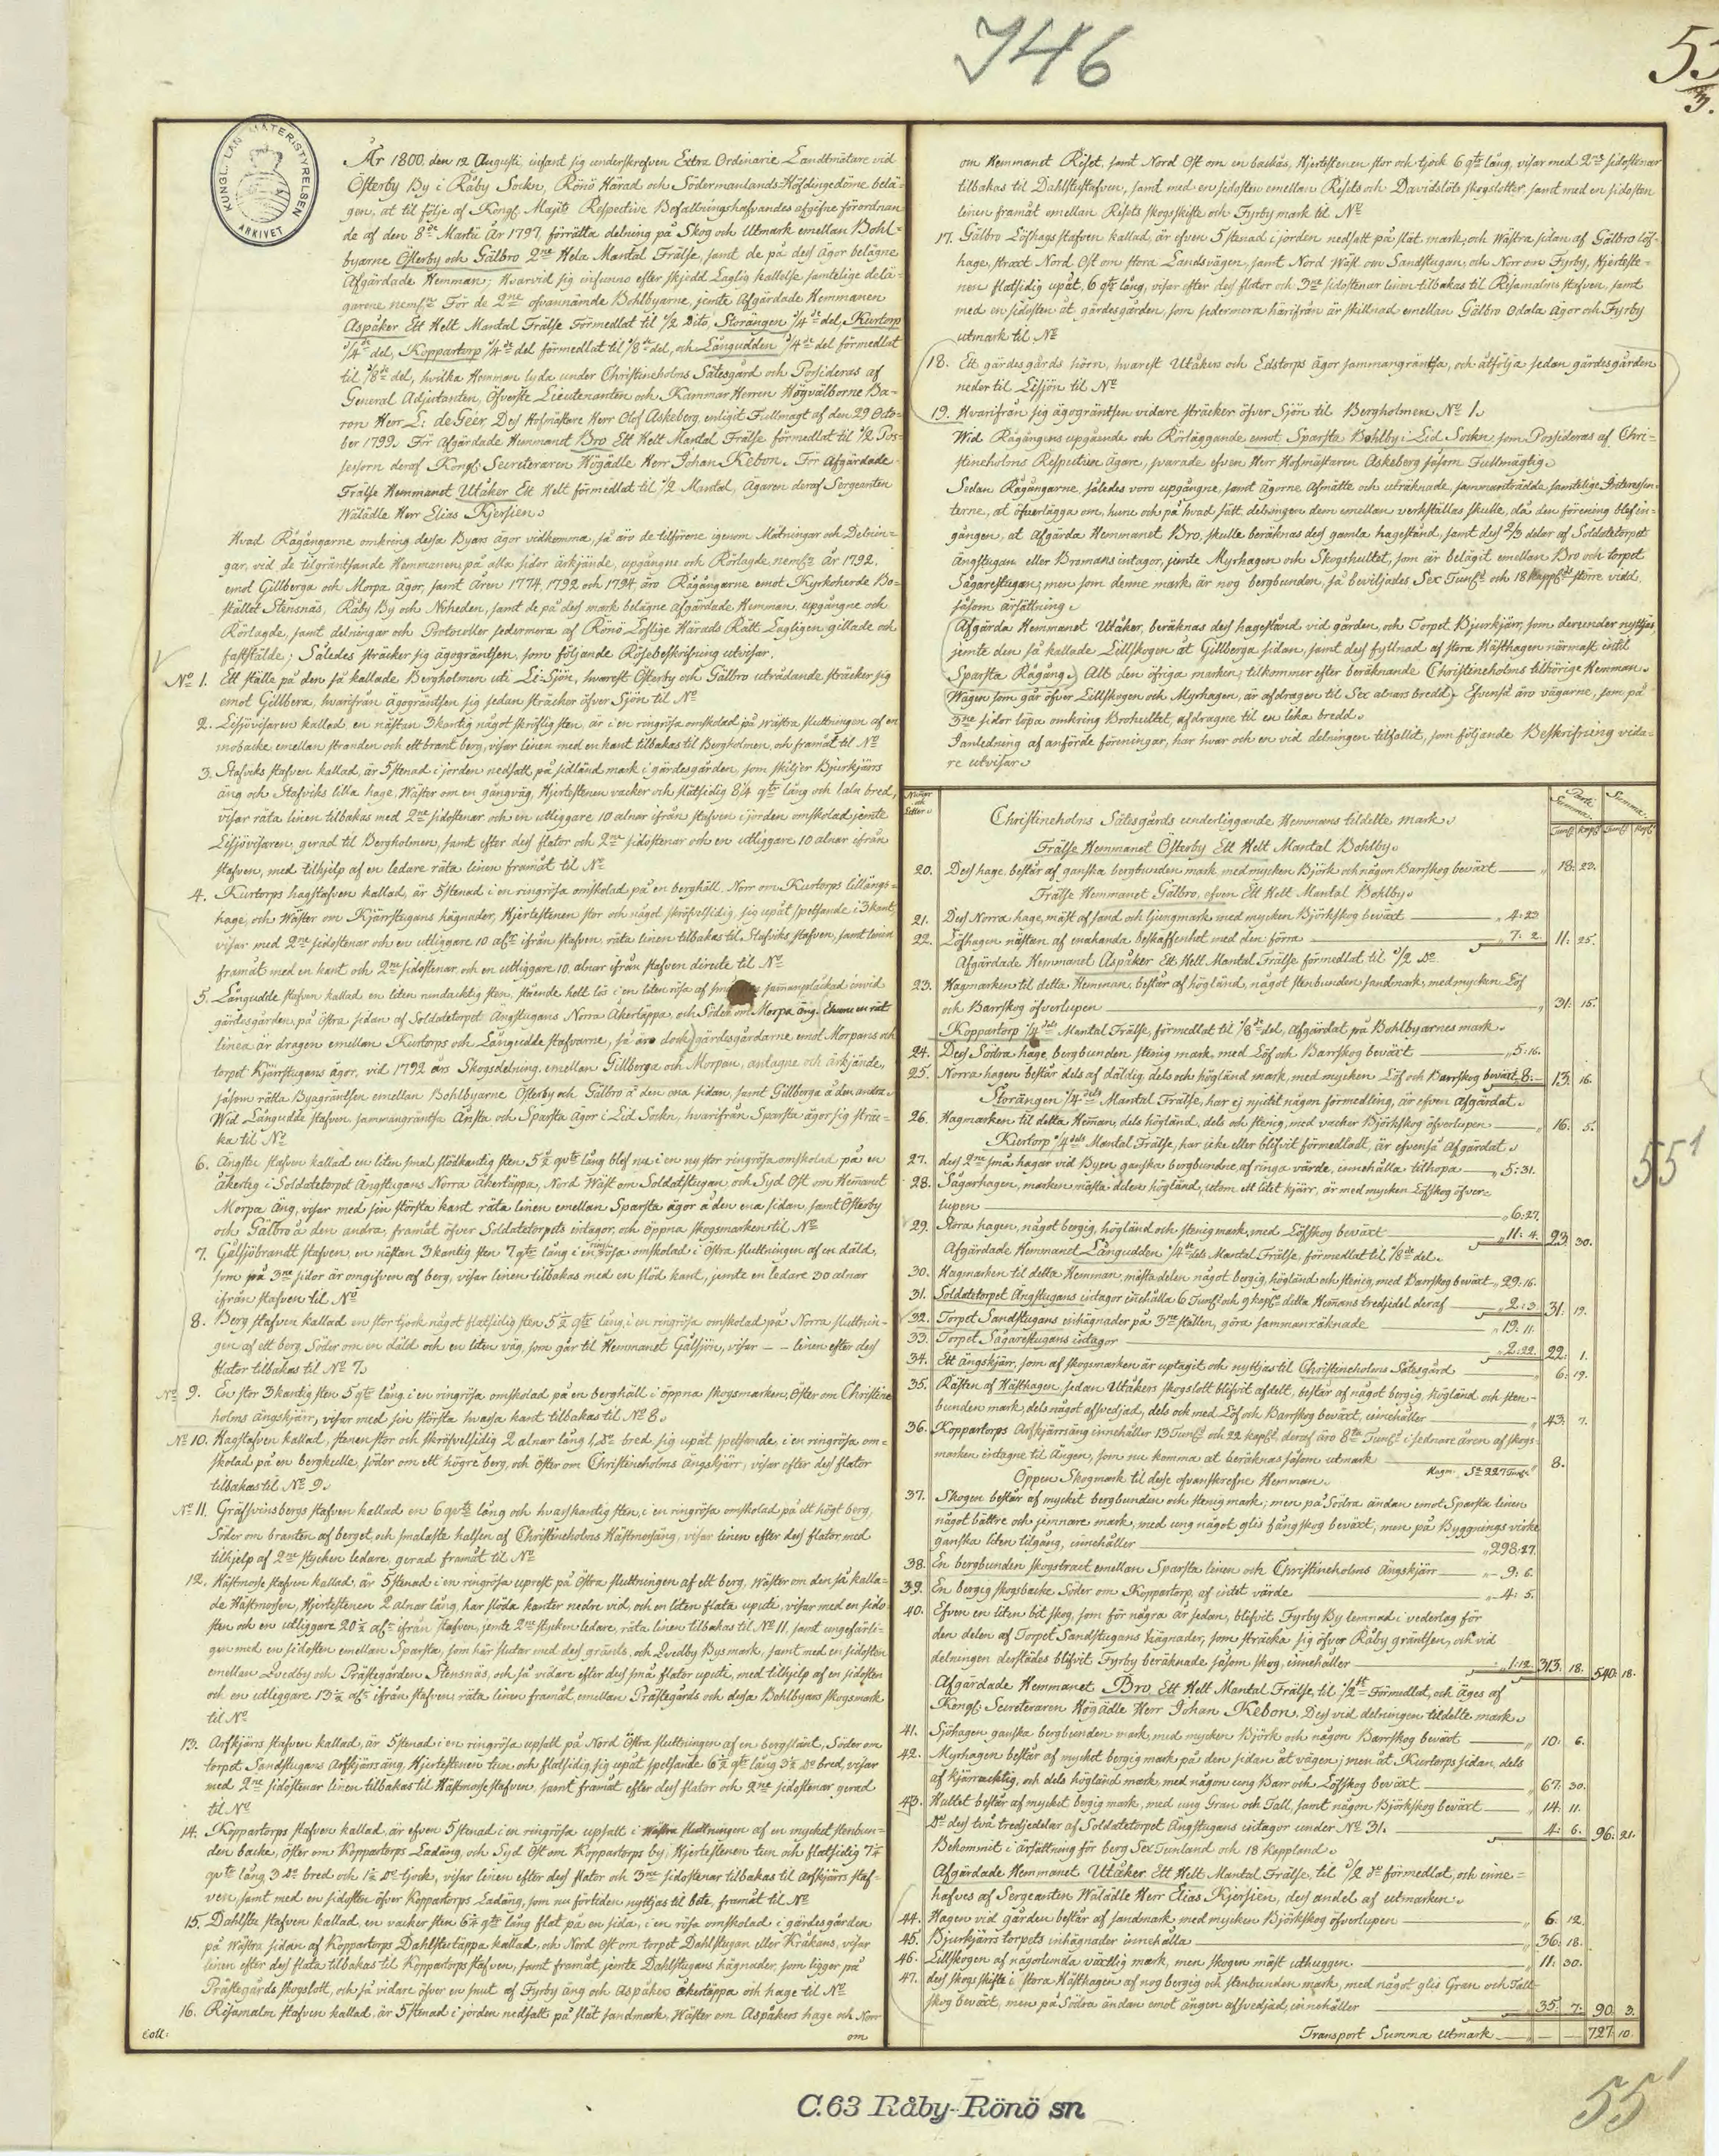 746
55
3.
KUNGL. LANTMÄTERISTYRELSEN
ARKIVET
År 1800. den 12 Augusti, infant sig underskrefven Extra Ordinarie Landtmätare vid
Österby By i Råby Sockn, Rönö Härad och Södermanlands Höfdingedöme belä-
gen, at til följe af Kongl. Majts Respective Befallningshafvandes afgifne förordnan
de af den 8de Martii År 1797, förrätta delning på Skog och Utmark emellan Bohl-
byarne Österby och Gälbro 2ne Hela Mantal Frälse, samt de på dess Ägor belägne
Afgärdade Hemman; Hvarvid sig infunno efter skjedd Laglig kallelse samtelige delä-
garene nemln För de 2ne ofvannämde Bohlbyarne, jemte Afgärdade Hemmanen
Aspåker Ett Helt Mantal Frälse Förmedlat til 1/2 Dito, Storängen 1/4de del, Kurtorp
1/4de del, Koppartorp 1/4de del förmedlat til 1/8de del, och Långudden 1/4de del förmedlat
til 1/8de del, hvilka Hemman lyda under Christineholms Sätesgård och Possideras af
General Adjutanten, Öfverste Lieutenanten och Kammar Herren Högvälborne Ba-
ron Herr L: de Geer, Dess Hofmästare Herr Olof Askeberg, enligit Fullmagt af den 29 Octo-
ber 1799. För Afgärdade Hemmanet Bro Ett Helt Mantal Frälse förmedlat til 1/2 Pos-
sessorn deraf Kongl. Secreteraren Högädle Herr Johan Kebon. För Afgärdade
Frälse Hemmanet Utåker Ett Helt förmedlat til 1/2 Mantal, Ägaren deraf Sergeanten
Wälädle Herr Elias Kjersien.
Hvad Rågångarne omkring dessa Byars ägor vidkomma, så äro de tilförene igenom Mätningar och Delnin-
gar, vid de tilgräntsande Hemmanen, på alla sidor ärkjände, upgångne och Rörlagde, nemln År 1792.
emot Gillberga och Morpa Ägor, samt Åren 1774, 1792 och 1794 äro Rågångarne emot Kyrkoherde Bo-
stället Stensnäs, Råby By och Nyheden, samt de på dess mark belägne afgärdade Hemman, upgångne och
Rörlagde, samt delningar och Protocoller sedermera af Rönö Löflige Härads Rätt Lagligen gillade och
fastställde; Således sträcker sig ägogräntsen, som följande Rösebeskrifning utvisar.
No 1. Ett ställe på den så kallade Bergholmen uti Li:Sjön, hvarest Österby och Gälbro utrådande sträcker sig
emot Gillbera, hvarifrån ägogräntsen sig sedan sträcker öfver Sjön til No
2. Lisjövisaren kallad, en nästan 3kantig något skröflig sten, är i en ringrösa omskolad på wästra sluttningen af en
mobacke, emellan stranden och ett brant berg, visar linen med en kant tilbakas til Bergholmen, och framåt til No
3. Stafviks stafven kallad, är 5stenad i jorden nedsatt, på sidländ mark i gärdesgården, som skiljer Bjurkjärrs
äng och Stafviks lilla hage, Wäster om en gångväg, Hjertestenen vacker och slätsidig 8 1/4 qtr lång och 1 aln bred,
visar räta linen tilbakas med 2ne sidostenar och en utliggare 10 alnar ifrån stafven i jorden omskolad, jemte
Lisjövisaren, gerad til Bergholmen, samt efter dess flator och 2ne sidostenar och en utliggare 10 alnar ifrån
stafven, med tilhjelp af en ledare räta linen framåt til No
4. Kurtorps hagstafven kallad, är 5stenad i en ringrösa omskolad på en berghäll, Norr om Kurtorps lillängs-
hage, och Wäster om Kjärrstugans hägnader, Hjertestenen stor och något skröfvelsidig, sig upåt spetsande i 3kant
visar med 2ne sidostenar och en utliggare 10 alnr ifrån stafven, räta linen tilbakas til Stafviks stafven, samt linien
framåt med en kant och 2ne sidostenar, och en utliggare 10. alnar ifrån stafven directe til No
5. Långudde stafven kallad en liten rundacktig sten, stående helt lös i en liten rösa af samanpläckad invid
gärdesgården, på östra sidan af Soldatetorpet Ängstugans Norra Åkertäppa, och Söder om Morpa äng. Ehuru en rät
linea är dragen emellan Kurtorps och Långudde Stafvarne, så äro dock gärdesgårdarne emot Morpans och
torpet Kjärrstugans ägor, vid 1792 års Skogsdelning, emellan Gillberga och Morpan, antagne och ärkjände,
såsom rätta Byagräntsen emellan Bohlbyarne Österby och Gälbro å den ena sidan, samt Gillberga å den andra.
Wid Långudde stafven, sammangräntsa Änsta och Sparsta Ägor i Lid Sockn, hvarifrån Sparsta ägor sig sträc-
ka til No
6. Ängstu stafven kallad en liten smal stödkantig sten 5 1/2 qvtr lång blef nu i en ny stor ringrösa omskolad på en
åkerteg i Soldatetorpet Ängstugans Norra Åkertäppa, Nord Wäst om Soldatstugan, och Syd Ost om Hemanet
Morpa Äng, visar med sin största kant räta linen emellan Sparsta ägor å den ena sidan, samt Österby
och Gälbro å den andra, framåt öfver Soldatetorpets intagor, och öppna skogsmarken til No
7. Gålsjöbrandt stafven, en nästan 3kantig sten 7 qtr lång i en ringrösa omskolad i östra sluttningen af en däld,
som på 3ne sidor är omgifven af berg, visar linen tilbakas med en stöd kant, jemte en ledare 30 alnar
ifrån stafven til No
8. Berg stafven kallad en stor tjock något flatsidig sten 5 1/2 qtr lång, i en ringrösa omskolad på Norra sluttnin-
gen af ett berg, Söder om en däld och en liten väg, som går til Hemmanet Gålsjön, visar — — linen efter dess
flator tilbakas til No 7.
No 9. En stor 3kantig sten 5 qtr lång, i en ringrösa omskolad på en berghäll i öppna skogsmarken, Öster om Christine
holms ängskjärr, visar med sin största hvassa kant tilbakas til No 8.
No 10. Hagstafven kallad, stenen stor och skröfvelsidig 2 alnar lång 1, Do bred sig upåt spetsande, i en ringrösa om-
skolad på en bergkulle, söder om ett högre berg, och öster om Christineholms Ängskjärr, visar efter dess flator
tilbakas til No 9.
No 11. Gräfsvinsbergs stafven kallad en 6 qvtr lång och hvasskantig sten, i en ringrösa omskolad på ett högt berg,
Söder om branten af berget och smalaste halsen af Christineholms Hästmossäng, visar linen efter dess flator med
tilhjelp af 2ne stycken ledare, gerad framåt til No
12. Hästmosse stafven kallad, är 5stenad i en ringrösa uprest på östra sluttningen af ett berg, Wäster om den så kalla-
de Hästmossen, Hjertestenen 2 alnar lång, har stöda kanter nedre vid, och en liten flata uputi, visar med en sido
sten och en utliggare 20 1/2 alnr ifrån stafven, jemte 2ne stycken ledare, räta linen tilbakas til No 11, samt ungefärli-
gen med en sidosten emellan Sparsta, som här slutar med dess gränts, och Lvedby Bysmark, samt med en sidosten
emellan Lvedby och Prästegården Stensnäs, och så vidare efter dess små flator uputi, med tilhjelp af en sidosten
och en utliggare 13 1/2 alnr ifrån stafven, räta linen framåt, emellan Prästegårds och dessa Bohlbyars skogsmark
til No
13. Asskjärrs stafven kallad, är 5stenad i en ringrösa upsatt på Nord Östra sluttningen af en bergslänt, Söder om
torpet Sandstugans Asskjärrsäng, Hjertestenen tun och flatsidig, sig upåt spetsande 6 1/2 qtr lång 3 1/2 Do bred, visar
med 2ne sidostenar linen tilbakas til Hästmossestafven, samt framåt efter dess flator och 2ne sidostenar gerad
til No
14. Koppartorps stafven kallad, är efven 5stenad i en ringrösa upsatt i Wästra sluttningen af en mycket stenbun-
den backe, öster om Koppartorps Ladäng, och Syd Ost om Koppartorps by, Hjertestenen tun och flatsidig 7 1/4
qvtr lång 3 Do bred och 1 1/2 Do tjock, visar linen efter dess flator och 3ne sidostenar tilbakas til Asskjärrs staf-
ven, samt med en sidosten öfver Koppartorps Ladäng, som nu förtiden nyttjas til bete, framåt til No
15. Dahlstu stafven kallad, en vacker sten 6 1/4 qtr lång flat på en sida, i en rösa omskolad i gärdesgården
på Wästra sidan af Koppartorps Dahlstutäppa kallad, och Nord Ost om torpet Dahlstugan eller Kråkans, visar
linen efter dess flata tilbakas til Koppartorps stafven, samt framåt, jemte Dahlstugans hägnader, som ligger på
Prästegårds skogslott, och så vidare öfver en snut af Fyrby äng och Aspåker åkertäppa och hage til No
16. Risamalm stafven kallad, är 5stenad i jorden nedsatt på slät sandmark, Wäster om Aspåkers hage och Norr
Coll:
om
om Hemmanet Riset, samt Nord Ost om en backås, Hjertestenen stor och tjock 6 qtr lång, visar med 2ne sidostenar
tilbakas til Dahlstustafven, samt med en sidosten emellan Risets och Davidslöts skogslotter, samt med en sidosten
linen framåt emellan Risets skogsskifte och Fyrby mark til No
17. Gälbro Löfhags stafven kallad, är efven 5stenad i jorden nedsatt på slät mark, och Wästra sidan af Gälbro löf-
hage, straxt Nord Ost om stora Landsvägen, samt Nord Wäst om Sandstugan, och Norr om Fyrby, Hjerteste-
nen flatsidig upåt, 6 qtr lång, visar efter dess flator och 3ne sidostenar linen tilbakas til Risamalms stafven, samt
med en sidosten åt gärdesgården, som sedermera härifrån är skillnad emellan Gälbro Odala Ägor och Fyrby
utmark til No
18. Ett gärdesgårds hörn, hvarest Utåkers och Edstorps ägor sammangräntsa, och åtfölja sedan gärdesgården
neder til Lisjön til No
19. Hvarifrån sig ägogräntsen vidare sträcker öfver Sjön til Bergholmen No 1.
Wid Rågångens upgående och Rörläggande emot Sparsta Bohlby i Lid Sockn, som Possideras af Chri-
stineholms Respective Ägare, svarade efven Herr Hofmästaren Askeberg såsom Fullmägtig.
Sedan Rågångarne således voro upgångne, samt ägorne afmätte och uträknade, sammanträdda samtelige Interessen-
terne, at öfverlägga om, huru och på hvad sätt delningen dem emellan verkställas skulle, då den förening blef in-
gången, at afgärda Hemmanet Bro, skulle beräknas dess gamla hagestånd, samt dess 2/3 delar af Soldatetorpet
Ängstugan eller Bromans intagor, jemte Myrhagen och Skogshultet, som är belägit emellan Bro och torpet
Sågarestugan; men som denne mark är nog bergbunden, så beviljades Sex Tunld och 18 Kappld större vidd,
såsom ärsättning.
Afgärda Hemmanet Utåker, beräknas dess hagestånd vid gården, och Torpet Bjurkjärr, som derunder nyttjas,
jemte den så kallade Lillskogen åt Gillberga sidan, samt dess fyllnad af stora Hästhagen närmast intil
Sparsta Rågång. Alt den öfriga marken, tilkommer efter beräknande Christineholms tilhörige Hemman.
Wägen som går öfver Lillskogen och Myrhagen, är afdragen til Sex alnars bredd; Efvenså äro vägarne, som på
3ne sidor löpa omkring Brohultet, afdragne til en lika bredd.
I anledning af anförde föreningar, har hvar och en vid delningen tilfallit, som följande Beskrifning vida-
re utvisar.
Numer och Litter.
Parti Summa.
Summa.
Tunld Kapld Tunld Kapld
Christineholms Sätesgårds underliggande Hemmans tildelte mark.
Frälse Hemmanet Österby Ett Helt Mantal Bohlby.
20. Dess hage, består af ganska bergbunden mark med mycken Björk och någon Barrskog beväxt 18: 23.
Frälse Hemmanet Gälbro, efven Ett Helt Mantal Bohlby.
21. Dess Norra hage, mäst af sand och ljungmark med mycken Björkskog beväxt 4: 23
22. Löfhagen nästan af enahanda beskaffenhet med den förra 7: 2 11: 25.
Afgärdade Hemmanet Aspåker Ett Helt Mantal Frälse förmedlat til 1/2 Do
23. Hagmarken til detta Hemman, består af högländ, något stenbunden sandmark, med mycken Löf
och Barrskog öfverlupen 31: 15.
Koppartorp 1/4dels Mantal Frälse, förmedlat til 1/8de del, afgärdat på Bohlbyarnes mark.
24. Dess Södra hage, bergbunden stenig mark, med Löf och Barrskog beväxt 5: 16.
25. Norra hagen består dels af däldig, dels och högländ mark, med mycken Löf och Barrskog beväxt 8: — 13: 16.
Storängen 1/4dels Mantal Frälse, har ej njutit någon förmedling, är efven afgärdat.
26. Hagmarken til detta Heman, dels högländ, dels och stenig, med vacker Björkskog öfverlupen 16: 5.
Kurtorp 1/4dels Mantal Frälse, har icke eller blifvit förmedladt, är efvenså Afgärdat.
27. dess 2ne små hagar vid Byen, ganska bergbundne, af ringa värde, innehålla tilhopa 5: 31.
28. Sågarhagen, marken mästa delen högländ, utom ett litet kjärr, är med mycken Löfskog öfver-
lupen 6: 27.
29. Stora hagen, något bergig, högländ och stenig mark, med Löfskog beväxt 11: 4. 23: 30.
Afgärdade Hemmanet Långudden 1/4dels Mantal Frälse, förmedlat til 1/8de del.
30. Hagmarken til detta Hemman, mästa delen något bergig, högländ och stenig, med Barrskog beväxt 29: 16.
31. Soldatetorpet Ängstugans intagor inehålla 6 Tunld och 9 kapld detta Hemans tredjedel deraf 2: 3 31: 19.
32. Torpet Sandstugans inhägnader på 3ne ställen, göra sammanräknade 19: 11.
33. Torpet Sågarestugans intagor 2: 22. 22: 1.
34. Ett ängskjärr, som af skogsmarken är uptagit och nyttjas til Christineholms Sätesgård 6: 19.
35. Rästen af Hästhagen, sedan Utåkers skogslott blifvit afdelt, består af något bergig, högländ och sten-
bunden mark, dels något afsvedjad, dels ock med Löf och Barrskog beväxt, innehåller 43: 7.
36. Koppartorps Asskjärrsäng innehåller 13 Tunld och 22 kapld, deraf äro 8ta Tunld i sednare åren af skogs-
marken intagne til Ängen, som nu komma at beräknas såsom utmark 8.
Hagm. Sa 227 Tunld
Öppen Skogmark til desse ofvanskrefne Hemman.
37. Skogen består af mycket bergbunden och stenig mark; men på Södra ändan emot Sparsta linen
något bättre och jemnare mark, med ung något gles fångskog beväxt; men på Byggnings virke
ganska liten tilgång, innehåller 298: 27.
38. En bergbunden skogstract emellan Sparsta linen och Christineholms Ängskjärr 9: 6.
39. En bergig skogsbacke Söder om Koppartorp, af intet värde 4: 5.
40. Efven en liten bit skog, som för några år sedan, blifvit Fyrby By lemnad i vederlag för
den delen af Torpet Sandstugans hägnader, som sträcka sig öfver Råby gräntsen, och vid
delningen derstädes blifvit Fyrby beräknade såsom skog, innehåller 1: 12. 313: 18. 540: 18.
Afgärdade Hemmanet Bro Ett Helt Mantal Frälse, til 1/2t Förmedlat, och äges af
Kongl. Secreteraren Högädle Herr Johan Kebon, Dess vid delningen tildelte mark.
41. Sjöhagen, ganska bergbunden mark, med mycken Björk och någon Barrskog beväxt 10: 6.
42. Myrhagen består af mycket bergig mark på den sidan åt vägen; men åt Kurtorps sidan, dels
af kjärracktig, och dels högländ mark, med någon ung Barr och Löfskog beväxt 67: 30.
43. Hultet består af mycket bergig mark, med ung Gran och Tall, samt någon Björkskog beväxt 14: 11.
Do dess två tredjedelar af Soldatetorpet Ängstugans intagor under No 31. 4: 6. 96: 21.
Bekommit i ärsättning för berg Sex Tunland och 18 Kappland.
Afgärdade Hemmanet Utåker Ett Helt Mantal Frälse, til 1/2 Do förmedlat, och inne-
hafves af Sergeanten Wälädle Herr Elias Kjersien, dess andel af utmarken.
44. Hagen vid gården består af sandmark med mycken Björkskog öfverlupen 6: 12.
45. Bjurkjärrs torpets inhägnader innehålla 36: 18.
46. Lillskogen af någorlunda växtlig mark, men skogen mäst uthuggen 11: 30.
47. dess skogsskifte i stora Hästhagen af nog bergig och stenbunden mark, med något gles Gran och Tall-
skog beväxt, men på Södra ändan emot ängen afsvedjad, innehåller 35: 7: 90: 3.
Transport Summa utmark — — 727: 10.
551
C.63 Råby-Rönö sn
55